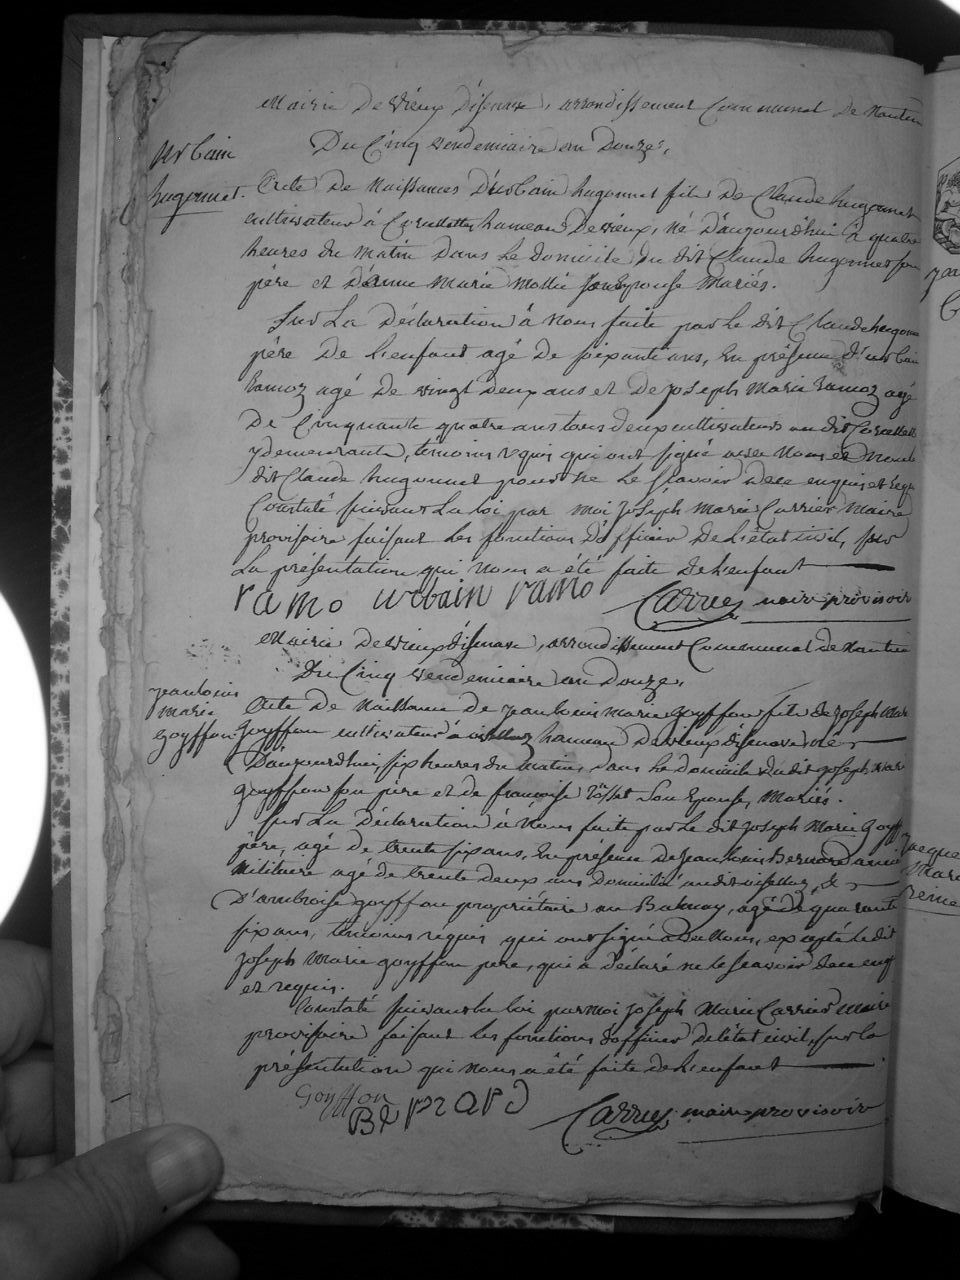 Mairie De Vieux Disenave, arrondissement Communal de Nantua
Du Cinq vendemiaire an Douze.
urbain
hugonnet.
Acte De Naissances D'urbain hugonnet fils De Claude hugonnet
cultivateur à hameau De vieux, né D'aujourd'hui à quatre
heures du matin Dans Le Domicile du dit Claude hugonnet son
père et D'anne Marie Mollie son Epouse Mariés.
Sur La Déclaration à Nous faite par Le dit Claude hugonnet
père De L'enfant agé De soixante ans, En présence D'urbain
ramoz agé De vingt Deux ans et De joseph Marie ramoz agé
De Cinquante quatre ans tous deux cultivateurs au dit
y demeurants, témoins requis qui ont signé avec Nous et Non le
dit Claude hugonnet pour ne Le Sçavoir De ce enquis et requis
Constaté suivant La loi par moi joseph Marie Carrier Maire
provisoire faisant Les fonctions D'officier De L'état civil, sur
La présentation qui Nous a été faite De L'enfant
ramo urbain ramo Carrier maire provisoir
Mairie De vieux Disenave, arrondissement Communal de Nantua
Du Cinq vendemiaire an Douze.
jean louis
marie
Goyffon
Acte De Naissance De jean louis marie goyffon fils de joseph Marie
Goyffon cultivateur à hameau De vieux disenave né
D'aujourdhui six heures du matin, dans Le Domicile du dit joseph marie
goyffon son père et de françoise Son Epouse, Mariés.
Sur La Déclaration à Nous faite par Le dit joseph Marie Goyffon
père, agé de trente six ans, En présence De jean louis Bernard ancien
Militaire agé de trente deux ans Domicilié au dit et
D'ambroise goyffon propriétaire au Balmay, agé De quarante
six ans, témoins requis qui ont signé avec Nous, excepté le dit
joseph Marie goyffon père, qui à Déclaré ne le sçavoir de ce enquis
et requis.
Constaté suivant La loi par moi joseph Marie Carrier Maire
provisoire faisant les fonctions D'officier De L'état civil, sur la
présentation qui Nous a été faite de L'enfant
Goyffon
BERNARD Carrier maire provisoir
jacque
Marie